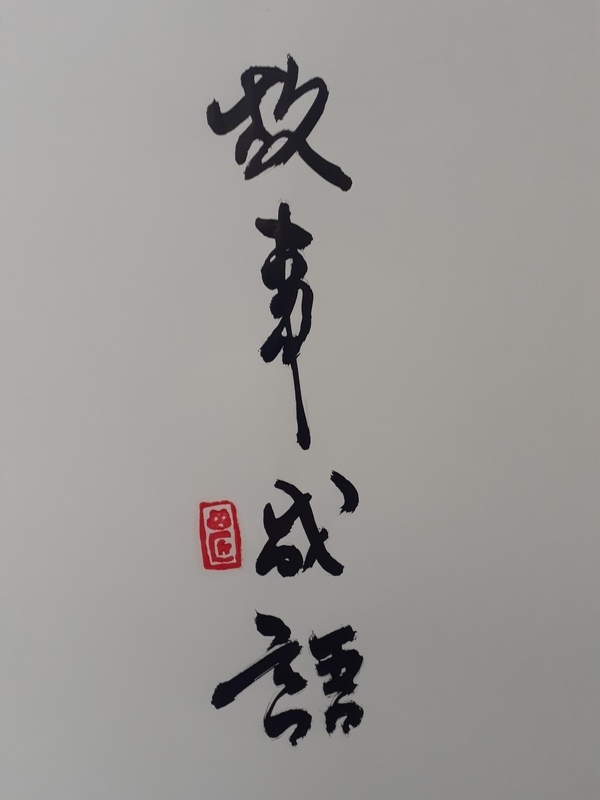 故事成語